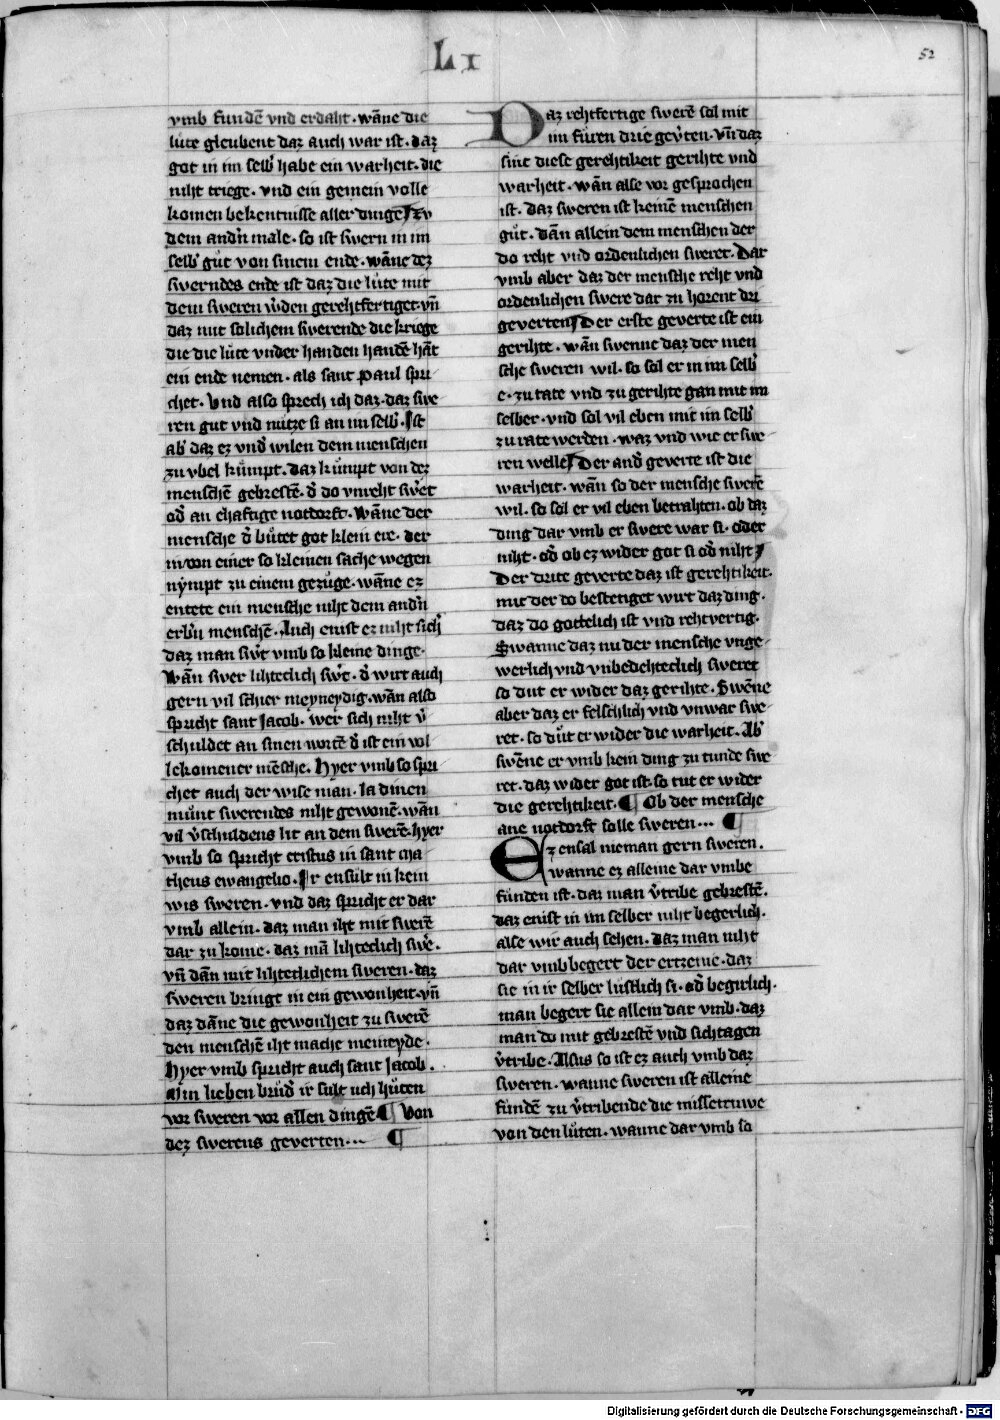 Lı
52
vmb fundē vnd erdaht · wāne die
lu̇te gleubent daz auch war ist · daz
got in im selb̓ habe ein warheit · die
niht triege · vnd ein gemein volle
komen bekentnisse aller dinge / zv
dem and̓n male · so ist swern in im
selb̓ gu̇t von sinem ende · wāne dez
swerndes ende ist daz die lu̇te mit
dem sweren w̓den gerehtfertiget · vn̄
daz mit solichem swerende die kriege
die die lu̇te vnder handen handē hāt
ein ende nemen · als sant paul spri
chet · Vnd also sprech ich daz · daz swe
ren gut vnd nu̇tze si an im selb̓ · Ist
ab̓ daz ez vnd̓ wilen dem menschen
zu vbel ku̇mpt · daz ku̇mpt von dez
menschē gebrestē · d̓ do vnreht sw̓et
od̓ an ehaftige notdorft · wāne der
mensche d̓ bu̇tet got klein ere · der
in von einer so kleinen sache wegen
nympt zu einem gezu̇ge · wāne ez
entete ein mensche niht dem and̓n
erb̓n menschē · Auch enist ez niht sich̓
daz man sw̓t vmb so kleine dinge ·
wān swer lihteclich sw̓t · d̓ wirt auch
gern vil schier meyneydig · wān also
spricht sant Jacob · wer sich niht v̓
schuldet an sinen wortē d̓ ist ein vol
lekomener mēsche · Hyer vmb so spri
chet auch der wise man · la dinen
munt swerendes niht gewonē · wān
vil v̓schuldens lit an dem swerē · hyer
vmb so spricht cristus in sant ma
theus ewangelio · Ir ensu̇lt in kein
wis sweren · vnd daz spricht er dar
vmb allein · daz man iht mit swerē
dar zu kome · daz mā lihteclich swe̓ ·
vn̄ dān mit lihteclichem sweren · daz
sweren bringt in ein gewonheit · vn̄
daz dāne die gewonheit zu swerē
den menschē iht mache meineyde ·
Hyer vmb spricht auch sant Jacob .
Min lieben bru̇d̓ ir sult uch hu̇ten
vor sweren vor allen dingē ¶ Von
dez swerens geverten ··· ¶
Daz rehtfertige swerē sol mit
im fu̇ren drie gev̓ten · vn̄ daz
sint diese gerehtikeit gerihte vnd
warheit · wān alse vor gesprochen
ist · daz sweren ist keinē menschen
gu̇t · dān allein dem menschen der
do reht vnd ordenlichen sweret · Dar
vmb aber daz der mensche reht vnd
ordenlichen swere dar zu horent dri
geverten / Der erste geverte ist ein
gerihte · wān swenne daz der men
sche sweren wil · so sol er in im selb̓
e · zu rate vnd zu gerihte gan mit im
selber · vnd sol vil eben mit im selb̓
zu rate werden · waz vnd wie er swe
ren welle / Der and̓ geverte ist die
warheit · wān so der mensche swerē
wil · so sol er vil eben betrahten · ob daz
ding dar vmb er swere war si · oder
niht · od̓ ob ez wider got si od̓ niht /
Der dritte geverte daz ist gerehtikeit ·
mit der do bestetiget wirt daz ding ·
daz do gottelich ist vnd rehtvertig ·
Swanne daz nu der mensche vnge
werlich vnd vnbedehteclich sweret
so dut er wider daz gerihte · Swēne
aber daz er felschlich vnd vnwar swe
ret · so du̇t er wider die warheit · Ab̓
swēne er vmb kein ding zu tunde swe
ret · daz wider got ist · so tut er wider
die gerehtikeit · ¶ Ob der mensche
ane notdorft solle sweren ··· ¶
Ez ensal nieman gern sweren .
wanne ez alleine dar vmbe
fu̇nden ist · daz man v̓tribe gebrestē ·
daz enist in im selber niht begerlich ·
alse wir auch sehen · daz man niht
dar vmb begert der ertzenie · daz
sie in ir selber lu̇stlich si · od̓ begirlich ·
man begert sie allein dar vmb · daz
man do mit gebrestē vnd sichtagen
v̓tribe · Alsus so ist ez auch vmb daz
sweren · wanne sweren ist alleine
fundē zu v̓tribende die missetruwe
von den lu̇ten · wanne dar vmb so
Digitalisierung gefördert durch die Deutsche Forschungsgemeinschaft - DFG